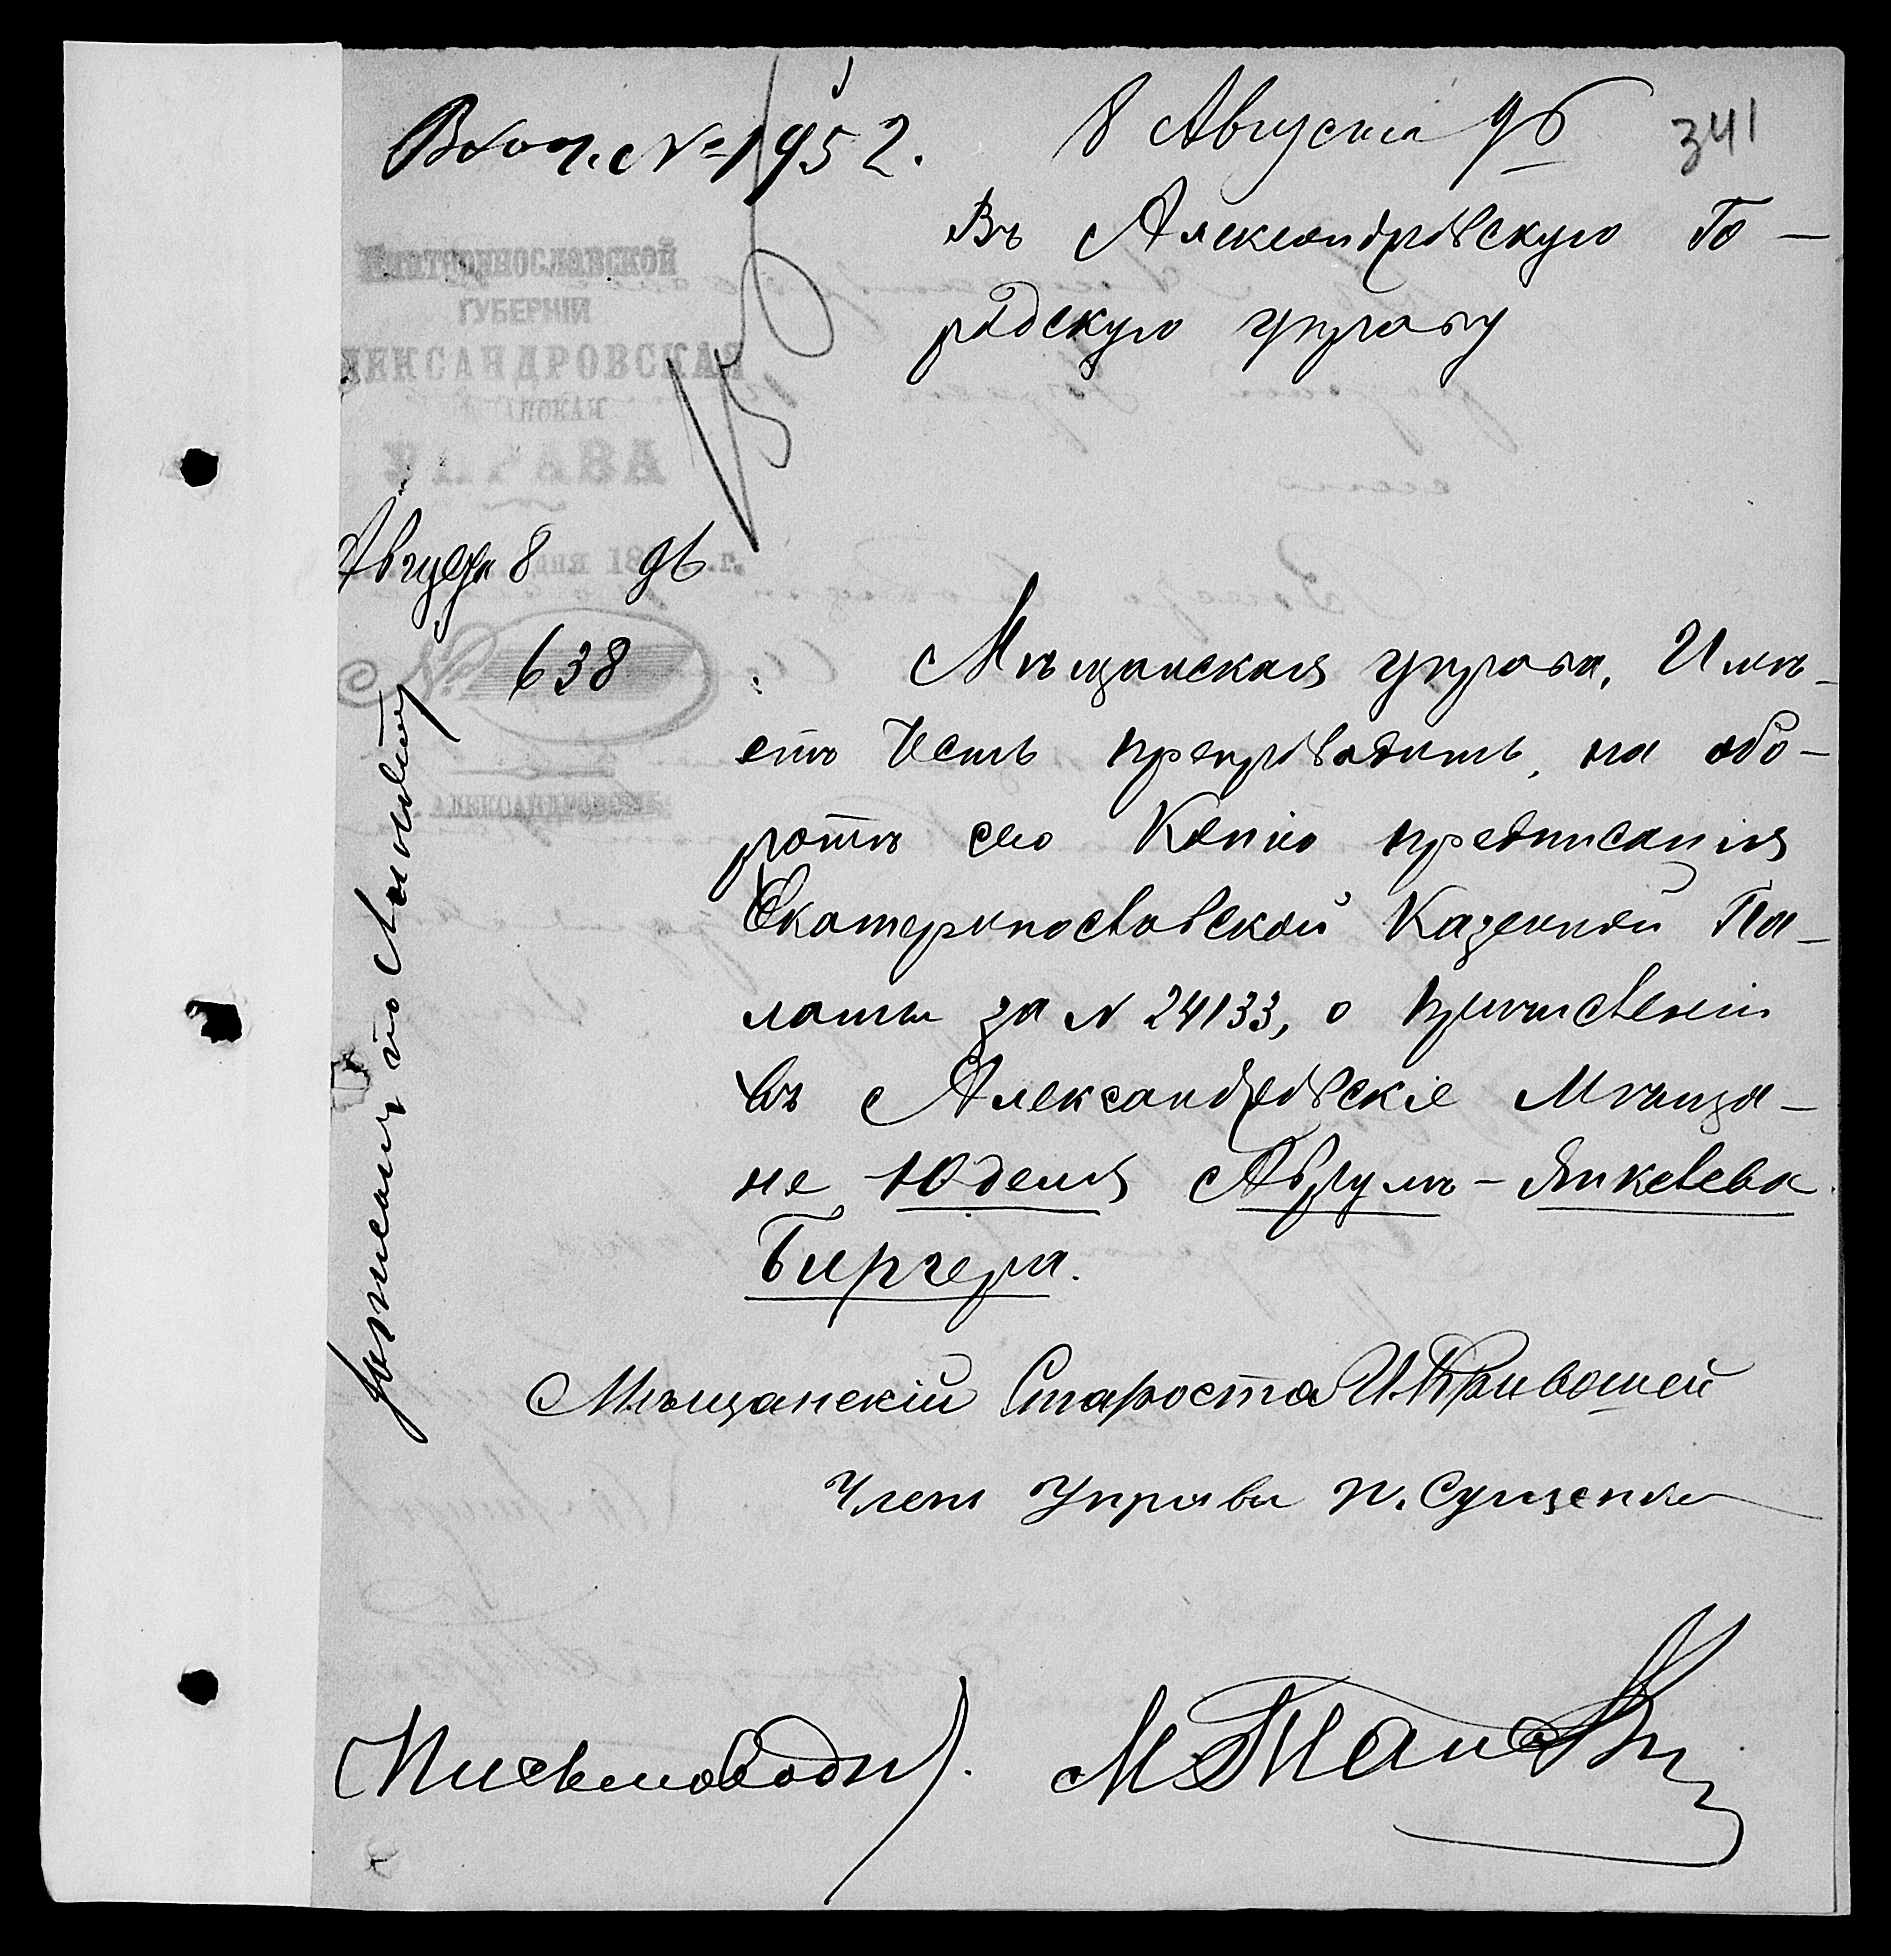 Входч. № 1952. 8 Августа 96 341
Въ Александровскую Го-
родскую управу
Екатеринославской
ГУБЕРНІИ
АЛЕКСАНДРОВСКАЯ
УПРАВА
Августа 8 дня 1896 г.
№ 638
АЛЕКСАНДРОВСКЪ
Мѣщанская управа, Имѣ-
етъ честь препроводить, на обо-
ротѣ сего Копію предписанія
Екатеринославской Казенной Па-
латы за N 24133, о причисленіи
въ Александровскіе Мѣща-
не Юделя Абрумъ-Янкелева
Бергера.
Мѣщанскій Староста И. Кривошей
Членъ Управы П. Сущенко
Письмоводи).